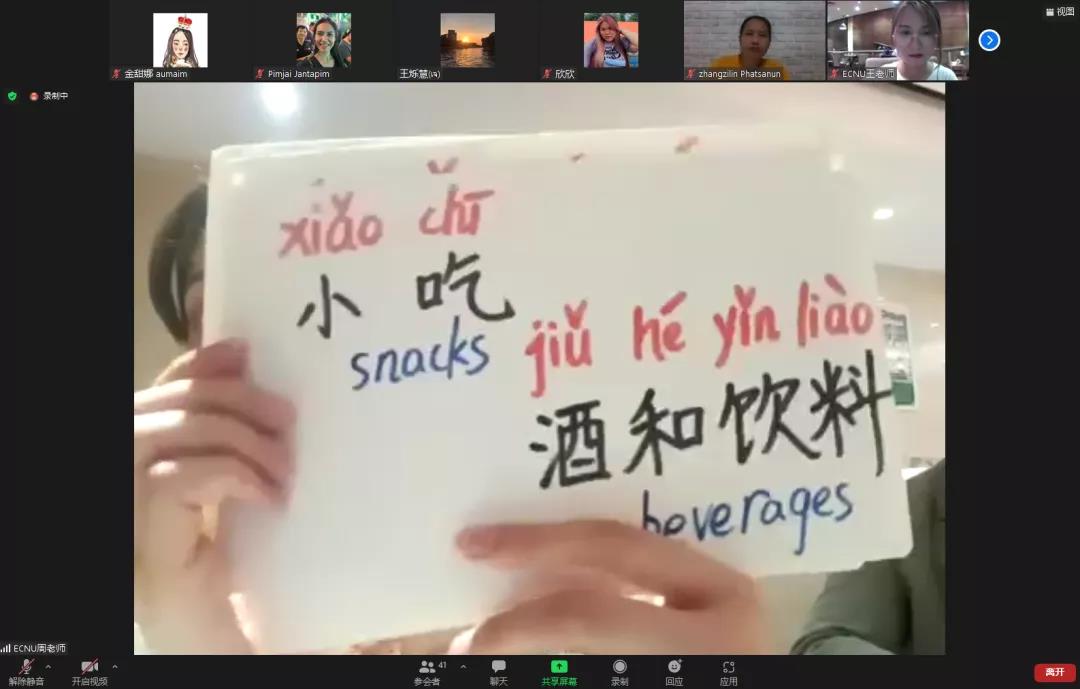 视图
金甜娜 aumaim
Pimjai Jantapim
王烁慧(ıyı)
欣欣
zhangzilin Phatsanun
ECNU王老师
录制中
xiǎo chī
小吃
snacks
jiǔ hé yǐn liào
酒和饮料
beverages
ECNU周老师
解除静音
开启视频
41
参会者
聊天
共享屏幕
录制
回应
应用
离开